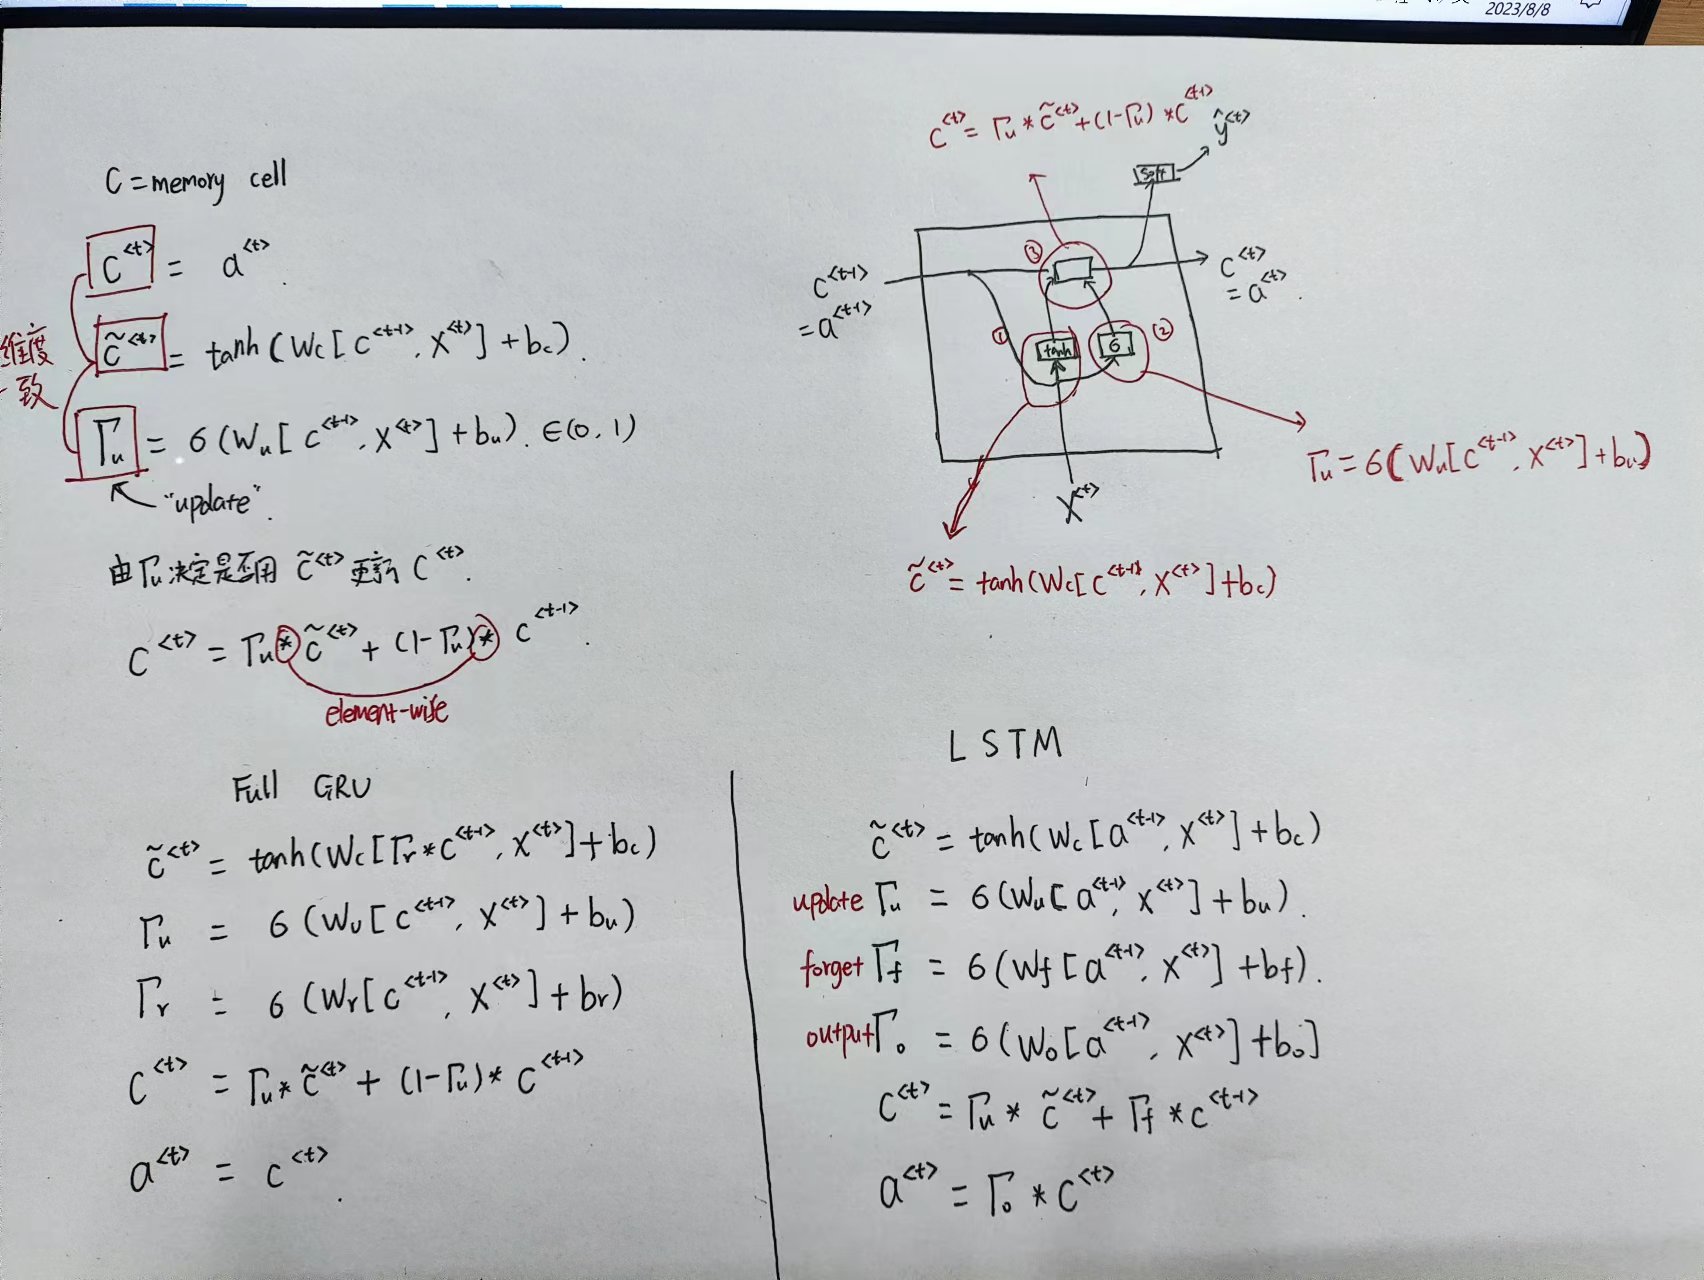 2023/8/8
C = memory cell
C^<t> = a^<t>
c̃^<t> = tanh(Wc[c^<t-1>, x^<t>] + bc).
维度
一致
Γu = 6(Wu[c^<t-1>, x^<t>] + bu). ∈(0, 1)
"update".
由Γu决定是否用 c̃^<t> 更新 C^<t>.
C^<t> = Γu * c̃^<t> + (1-Γu) * c^<t-1>.
element-wise
C^<t> = Γu * c̃^<t> + (1-Γu) * C^<t-1>
ŷ^<t>
soft
③
C^<t-1>
= a^<t-1>
C^<t>
= a^<t>.
①
tanh
6
②
Γu = 6(Wu[c^<t-1>, x^<t>] + bu)
X^<t>
c̃^<t> = tanh(Wc[c^<t-1>, x^<t>] + bc)
Full GRU
c̃^<t> = tanh(Wc[Γr * c^<t-1>, x^<t>] + bc)
Γu = 6(Wu[c^<t-1>, x^<t>] + bu)
Γr = 6(Wr[c^<t-1>, x^<t>] + br)
C^<t> = Γu * c̃^<t> + (1-Γu) * c^<t-1>
a^<t> = c^<t>.
LSTM
c̃^<t> = tanh(Wc[a^<t-1>, x^<t>] + bc)
update Γu = 6(Wu[a^<t-1>, x^<t>] + bu).
forget Γf = 6(Wf[a^<t-1>, x^<t>] + bf).
output Γo = 6(Wo[a^<t-1>, x^<t>] + bo]
C^<t> = Γu * c̃^<t> + Γf * c^<t-1>
a^<t> = Γo * C^<t>